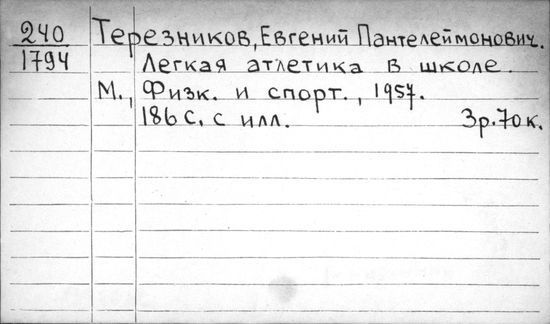 240 Терезников, Евгений Пантелеймонович.
1794 Легкая атлетика в школе.
М., Физк. и спорт., 1957.
186 с. с илл. 3р. 70к.